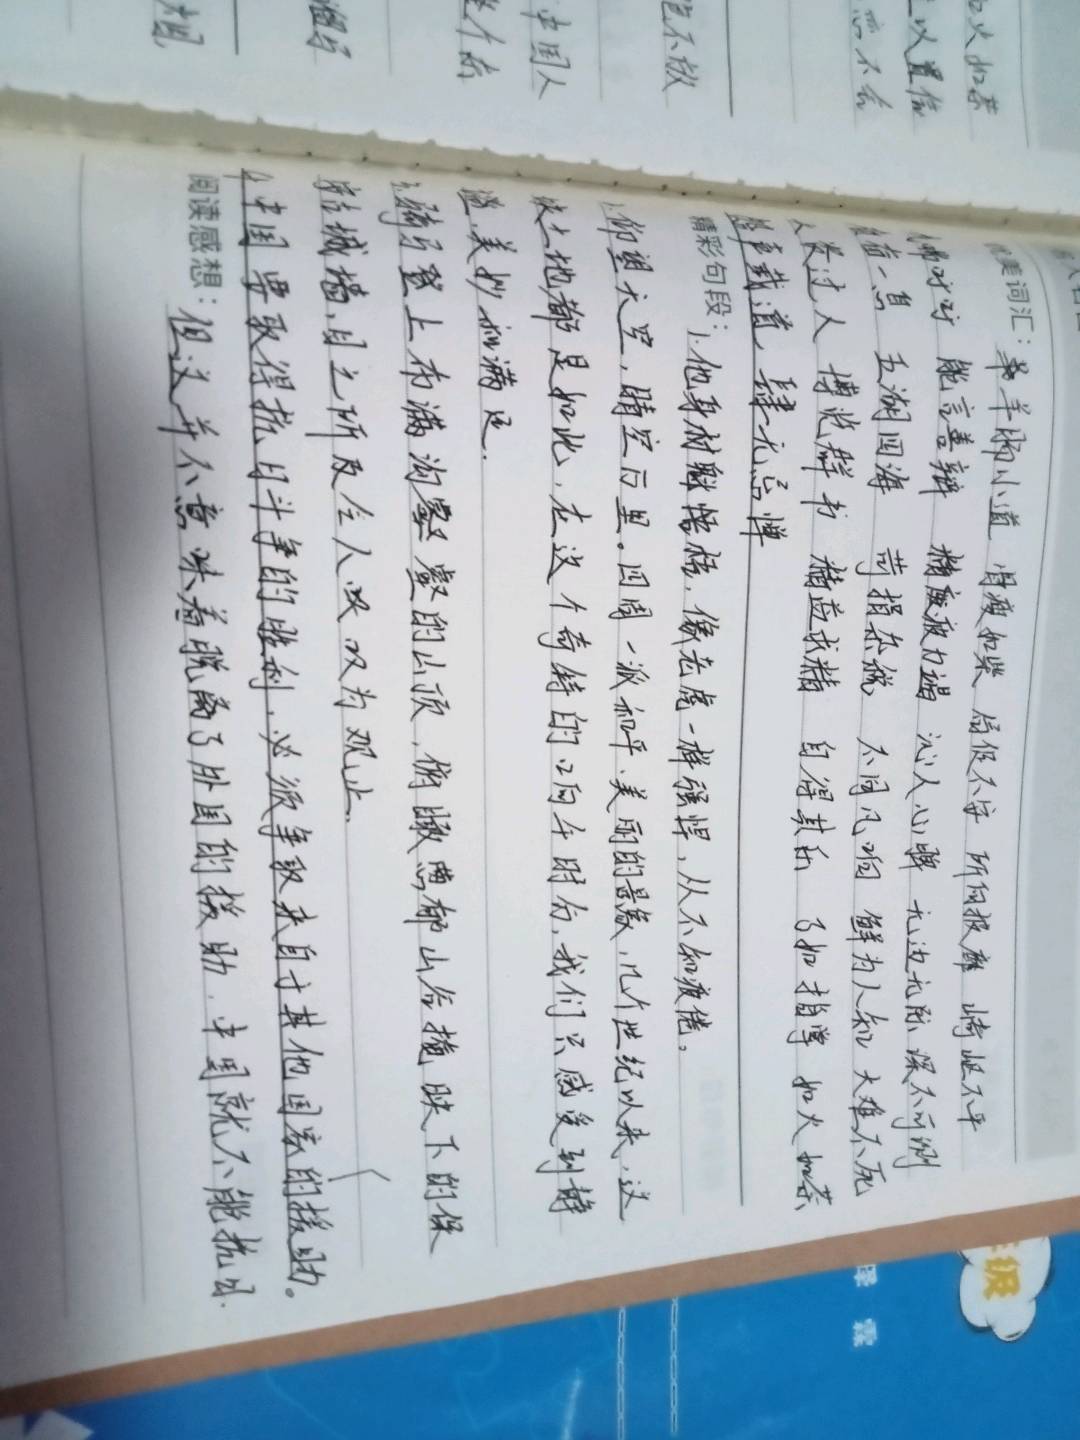 火如荼
以置信
而不舍
吃不饱
中国人
美词汇：羊肠小道 骨瘦如柴 局促不安 所向披靡 崎岖不平
能言善辩 精疲力竭 沁人心脾 无边无际 深不可测
一息 五湖四海 苛捐杂税 不同凡响 鲜为人知 大难不死
过人 博览群书 精益求精 自得其乐 了如指掌 如火如荼
怨声载道 肆无忌惮
精彩句段：1.他身材魁梧，像老虎一样强悍，从不知疲倦。
仰望天空，晴空万里。四周一派和平、美丽的景象，几个世纪以来，这
块土地都是如此，在这个奇特的晌午时分，我们只感受到静
谧、美妙和满足．
3.骑马登上布满沟壑的山顶，俯瞰葱郁山谷掩映下的保
安城墙，目之所及令人叹为观止．
4.中国要取得抗日斗争的胜利，必须争取来自于其他国家的援助。
阅读感想：但这并不意味着脱离了外国的援助，中国就不能抗日．
年级